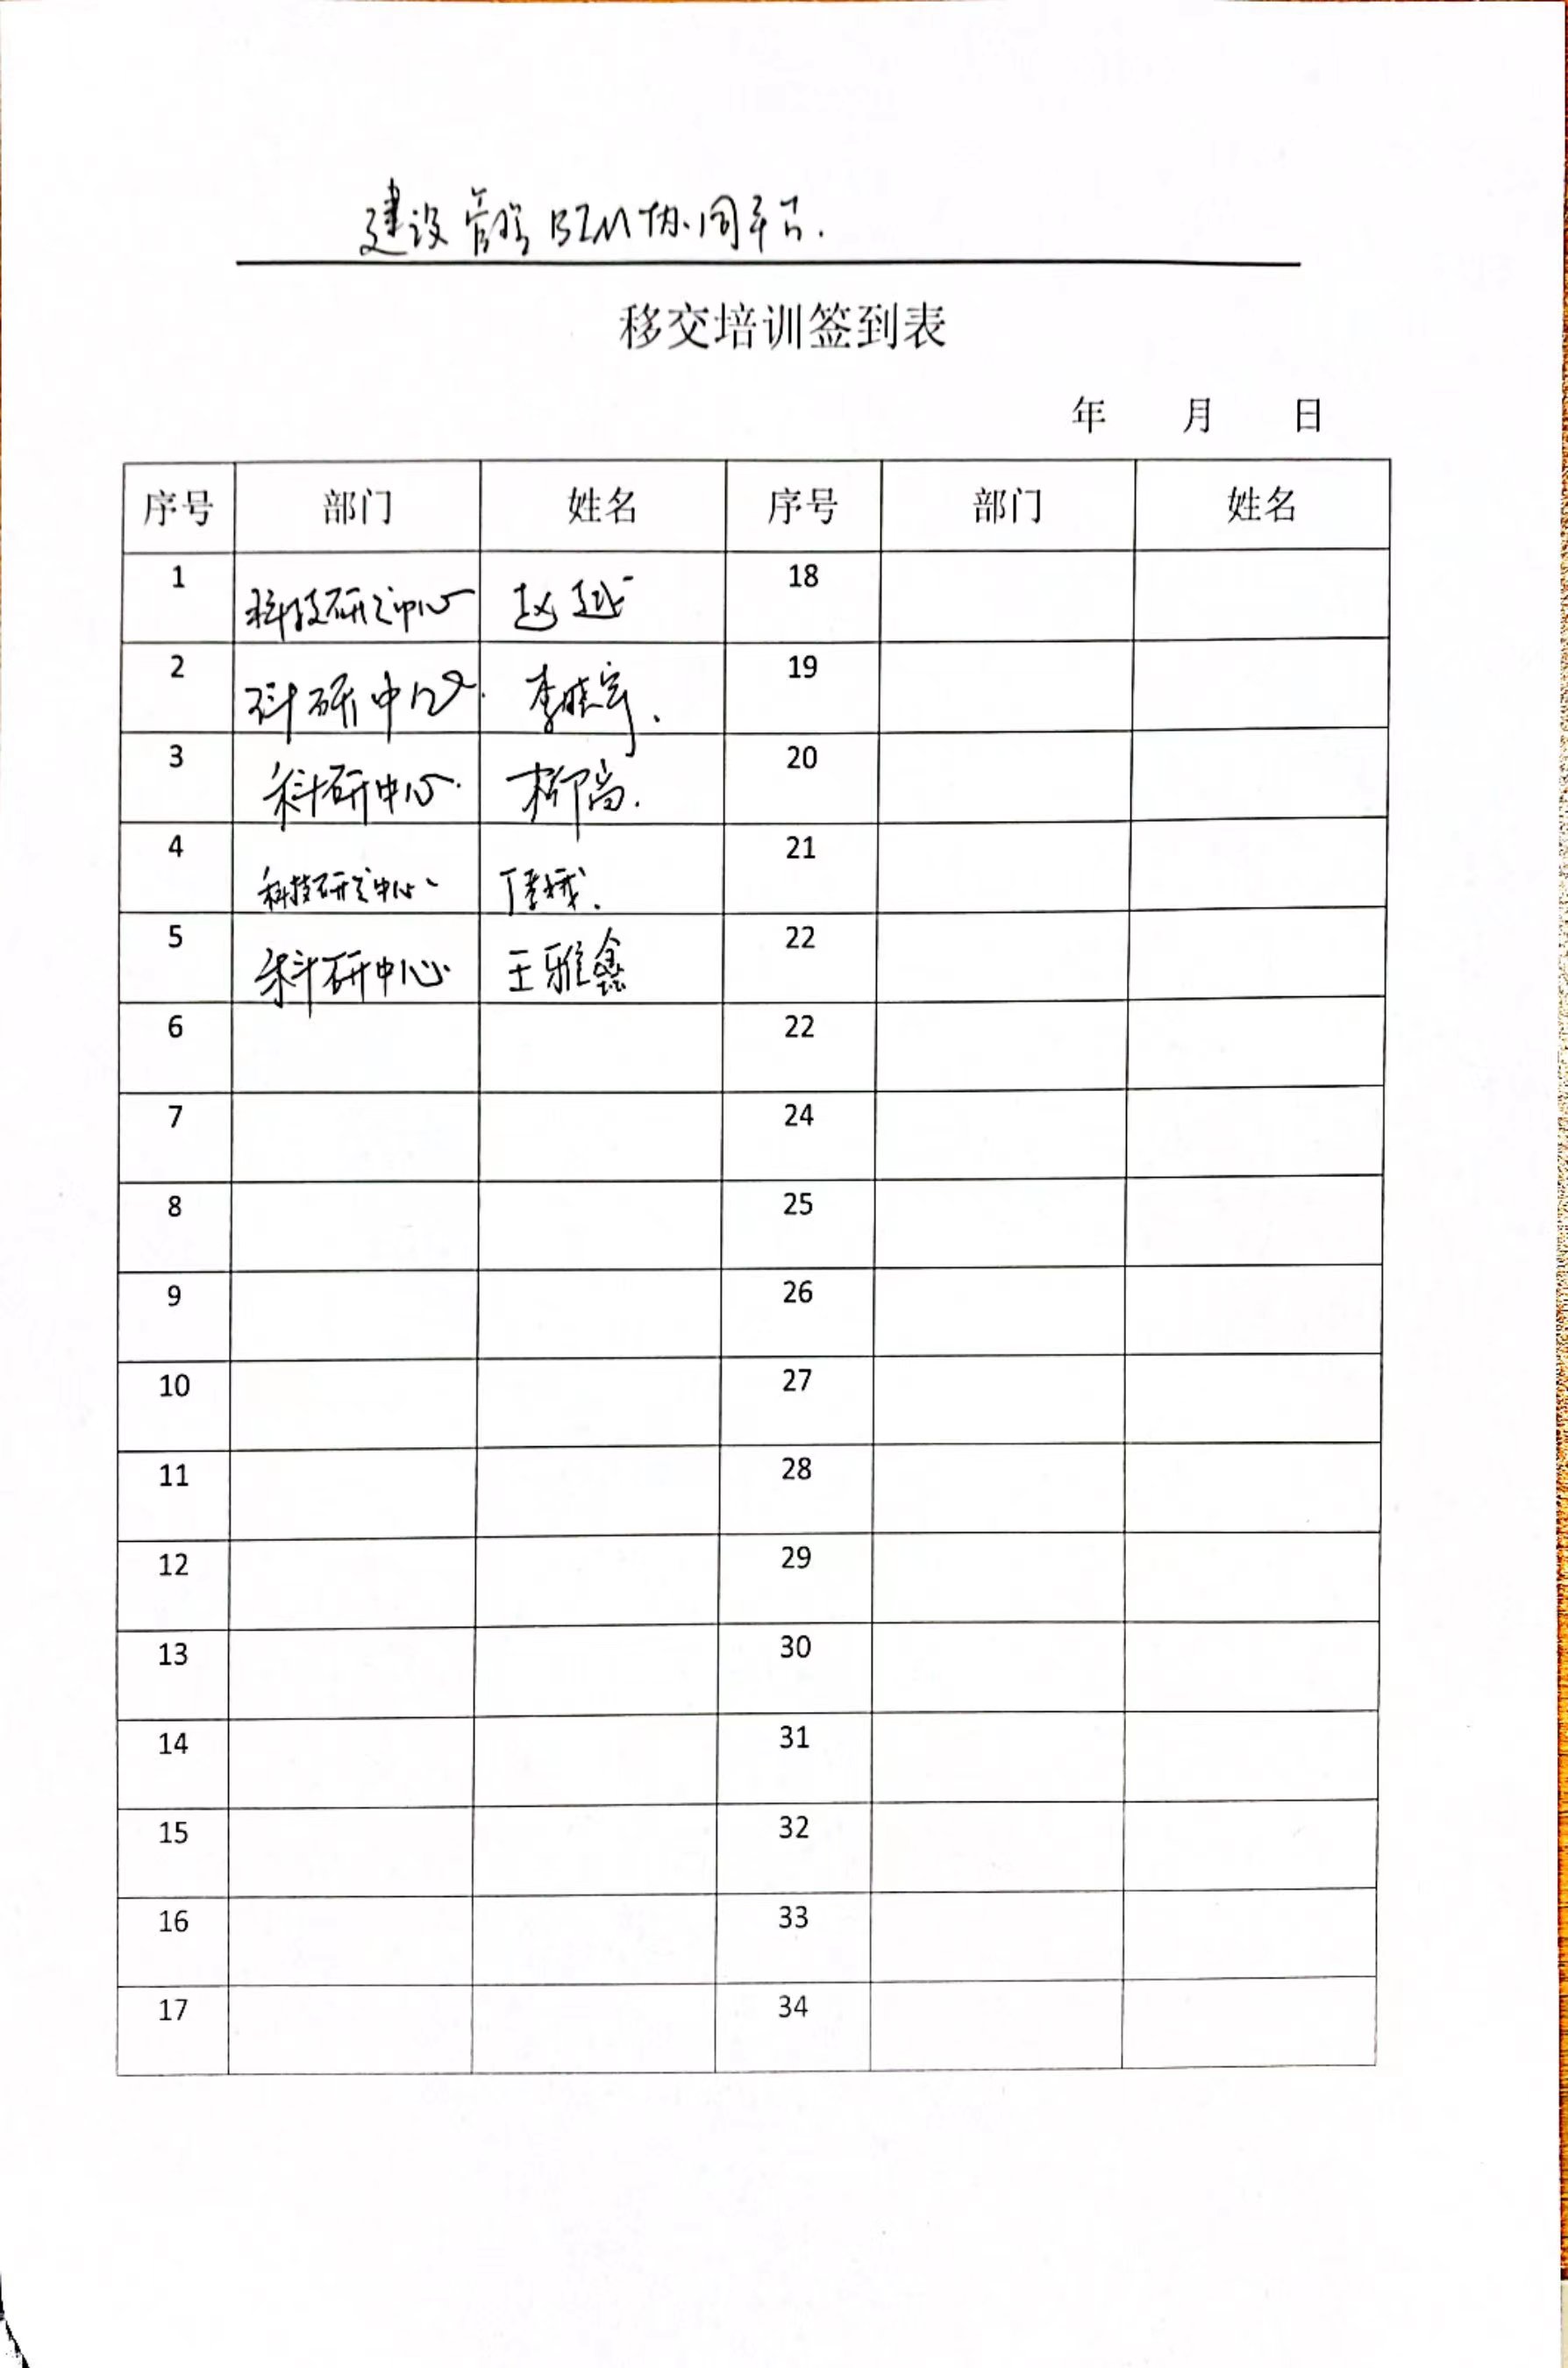 建设管理BIM协同平台.
移交培训签到表
年 月 日
序号 部门 姓名 序号 部门 姓名
1 科技研发中心 赵越 18
2 科研中心. 李晓宇. 19
3 科研中心. 柳尚. 20
4 科技研发中心 21
5 科研中心. 王雅鑫 22
6 22
7 24
8 25
9 26
10 27
11 28
12 29
13 30
14 31
15 32
16 33
17 34